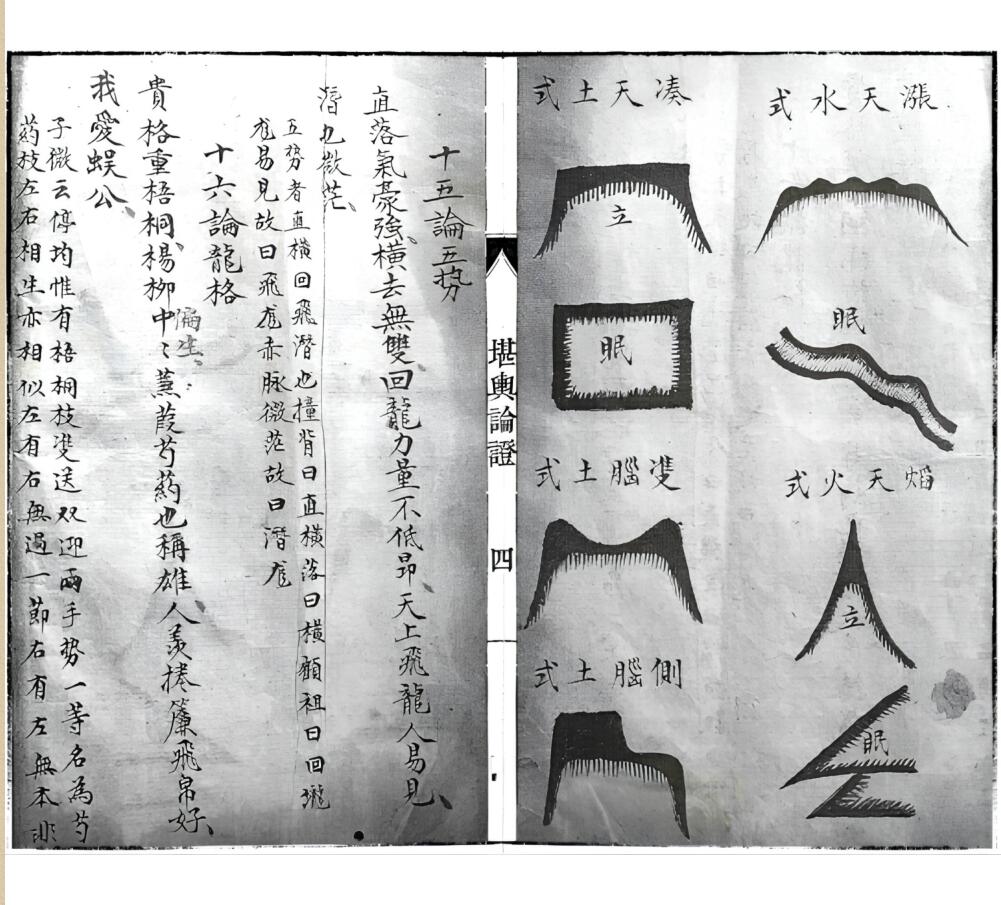 漲天水式
眠
焰天火式
立
眠
湊天土式
立
眠
雙腦土式
側腦土式
堪輿論證
四
十五論五势
直落氣豪強、橫去無雙、回龍力量不低昂、天上飛龍人易見、
潛九微茫、
五势者直橫回飛潛也撞背曰直橫落曰橫顧祖曰回瀧
尨易見故曰飛尨赤脉微茫故曰潛尨
十六論龍格
貴格重梧桐、楊柳中〻蒹葭芍葯也稱雄、人羡捲簾飛帛好、
偏生
我愛蜈公、
子微云停均惟有梧桐枝雙送双迎兩手势一等名為芍
葯枝左右相生亦相似左有右無過一節右有左無本非